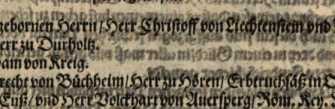 gebornen Herrn / Herr Christoff von Liechtenstein vnd
Herr zu Durholtz.
von Kreig.
recht von Büchheim / Herr zu Horen / Erbtruchsäß in
Enß / vnd Herr Volckhart von Auersperg / Röm. Key.